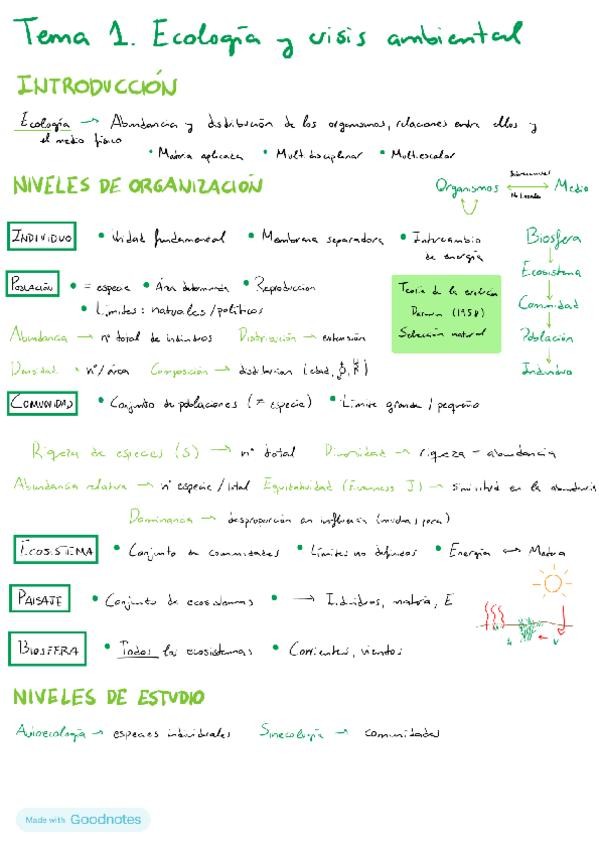 Tema 1. Ecología y crisis ambiental
INTRODUCCIÓN
Ecología → Abundancia y distribución de los organismos, relaciones entre ellos y
el medio físico
• Materia aplicada • Multidisciplinar • Multiescalar
NIVELES DE ORGANIZACIÓN
Organismos ↔ Medio
INDIVIDUO • Unidad fundamental • Membrana separadora • Intercambio
de energía
Biosfera
Ecosistema
Comunidad
Población
Individuo
POBLACIÓN • = especie • Área determinada • Reproducción
• Límites: naturales/políticos
Teoría de la evolución
Darwin (1958)
Selección natural
Abundancia → nº total de individuos Distribución → extensión
Densidad → nº/área Composición → distribución (edad,
COMUNIDAD • Conjunto de poblaciones (≠ especie) • Límite grande / pequeño
Riqueza de especies (S) → nº total Diversidad → riqueza - abundancia
Abundancia relativa → nº especie / total Equitatividad (Evenness J) → similitud en la abundancia
Dominancia → desproporción en influencia (mucha, poca)
ECOSISTEMA • Conjunto de comunidades • Límites no definidos • Energía ↔ Materia
PAISAJE • Conjunto de ecosistemas • → Individuos, materia, E
BIOSFERA • Todos los ecosistemas • Corrientes, vientos
NIVELES DE ESTUDIO
Autoecología → especies individuales Sinecología → comunidades
Made with Goodnotes